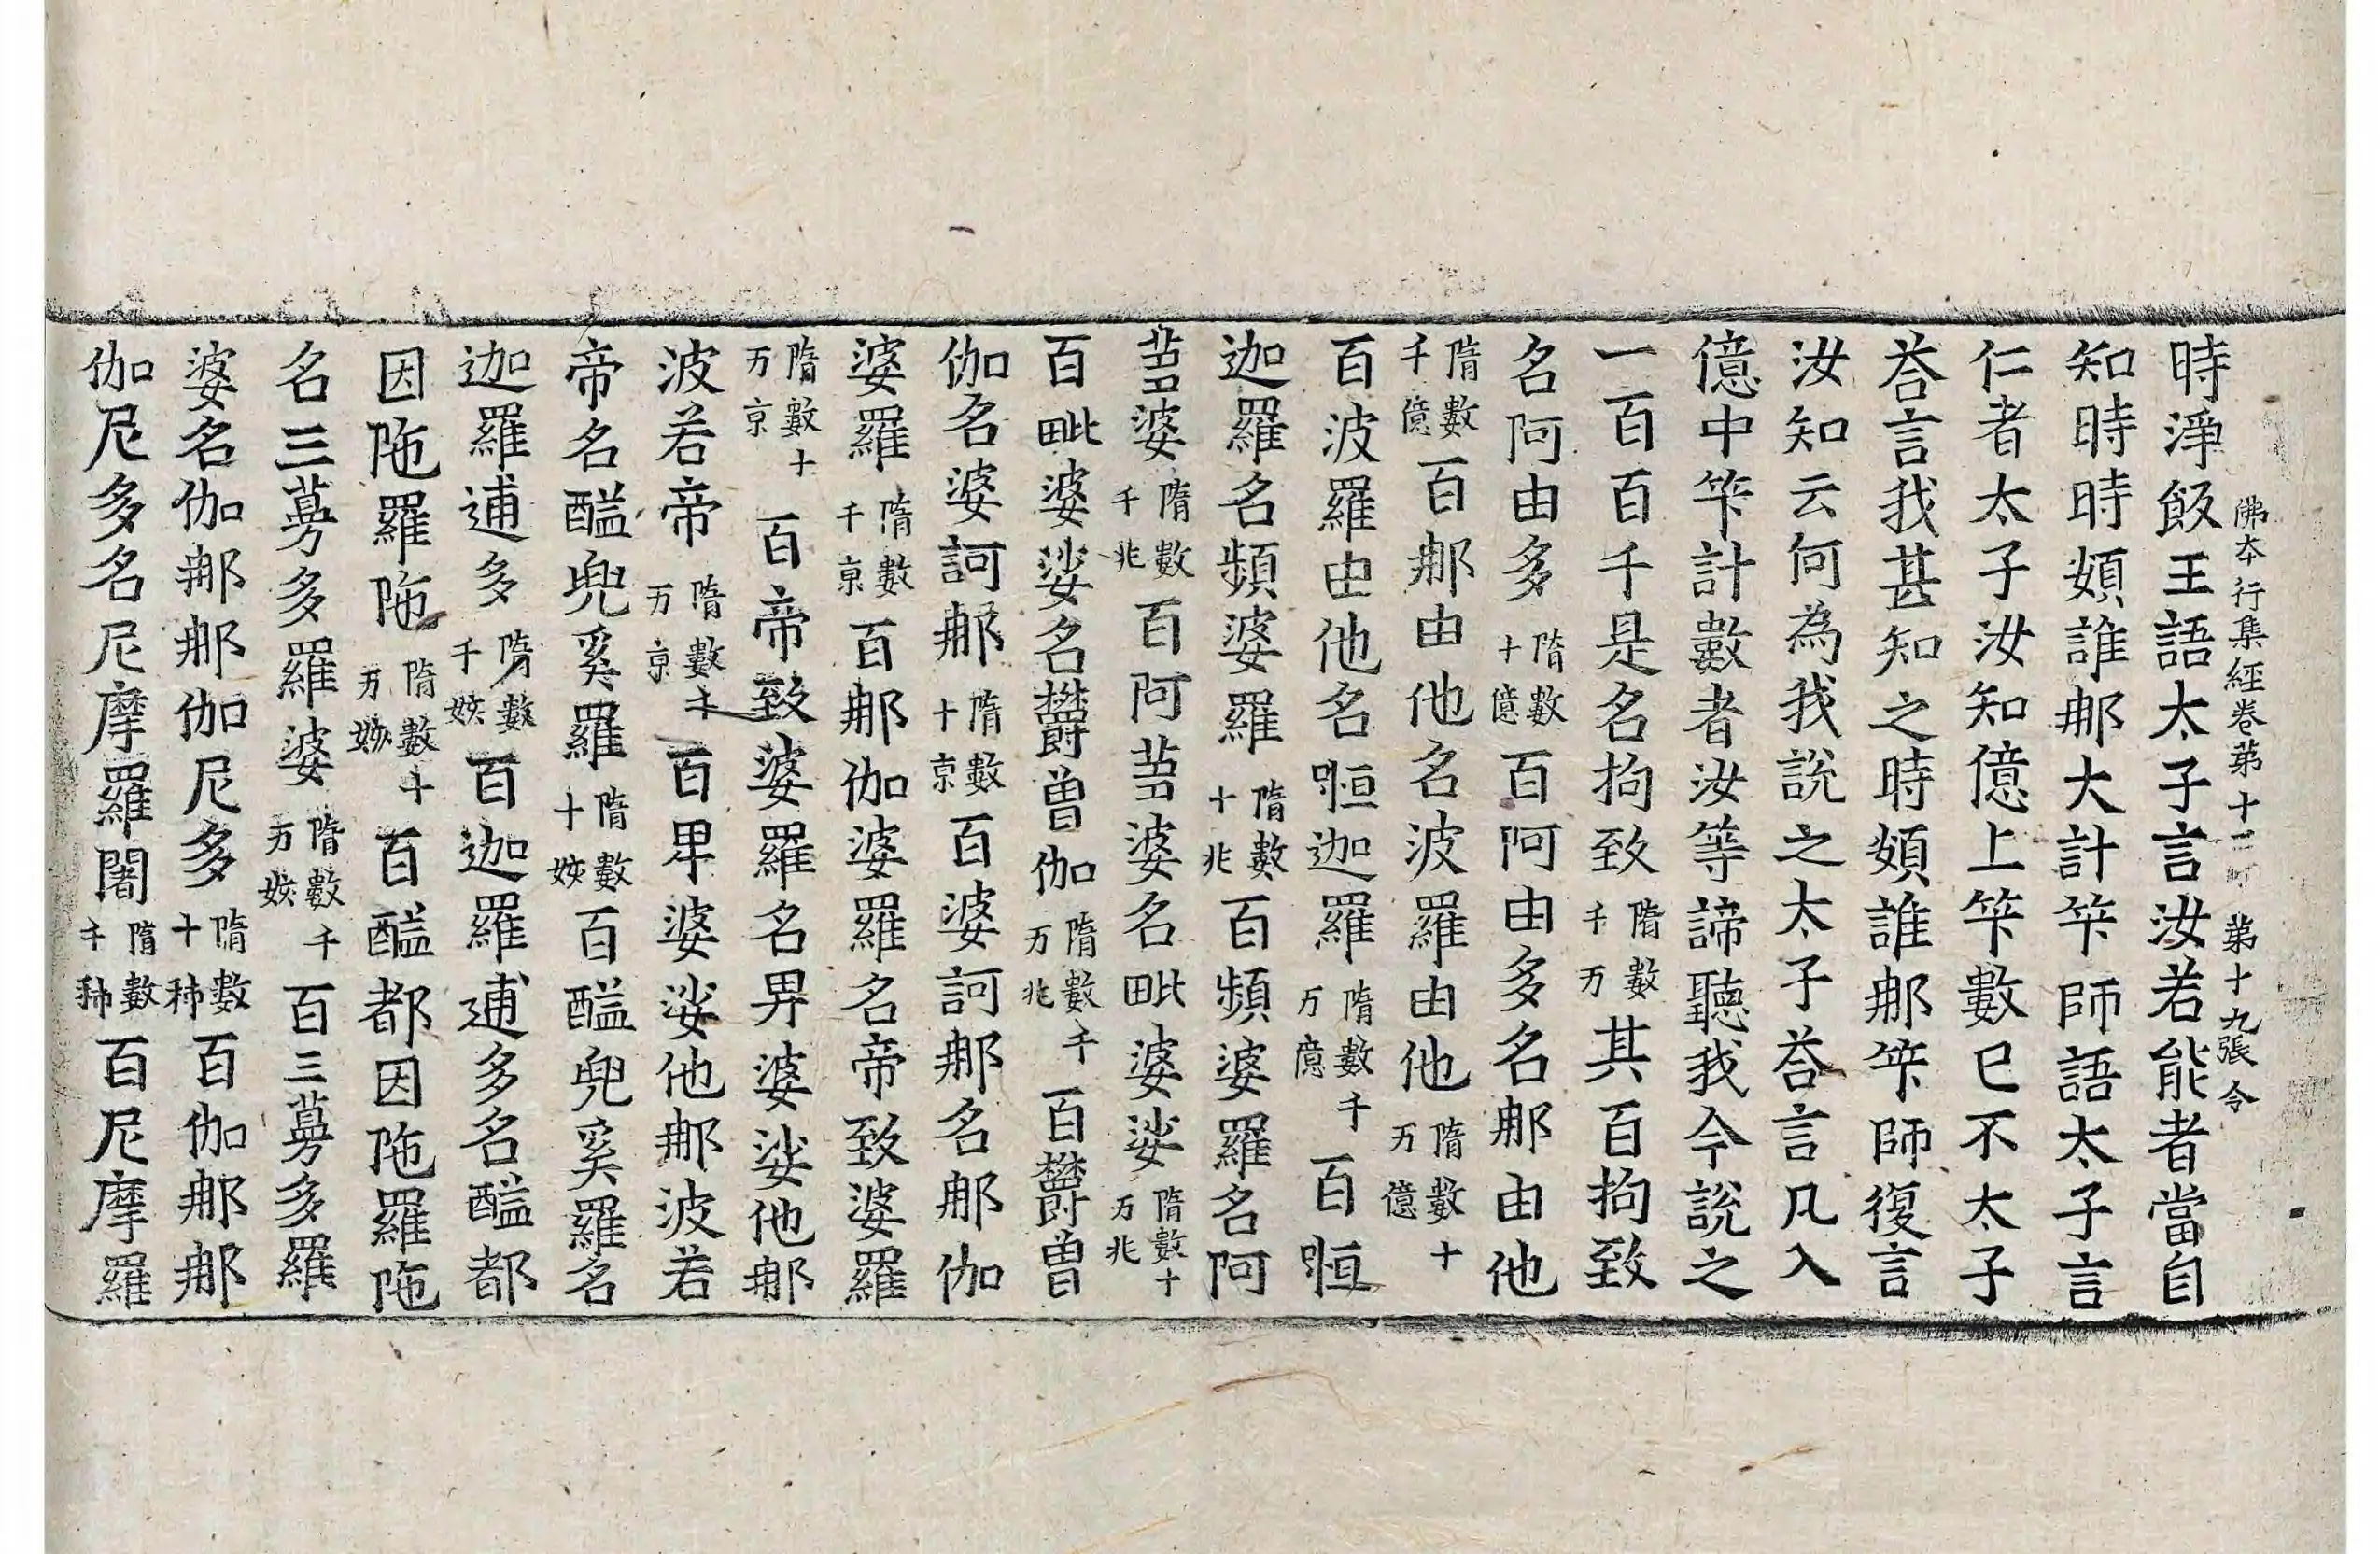 佛本行集經卷苐十二 苐十九張 令
時淨飯王語太子言汝若能者當自
知時時頞誰𨚗大計笇師語太子言
仁者太子汝知億上笇數已不太子
荅言我甚知之時頞誰𨚗笇師復言
汝知云何為我說之太子荅言凡入
億中笇計數者汝等諦聽我今說之
一百百千是名拘致隋數千万其百拘致
名阿由多隋數十億百阿由多名𨚗由他
隋數千億百𨚗由他名波羅由他隋數十万億
百波羅由他名㗌迦羅隋數千万億百㗌
迦羅名頻婆羅隋數十兆百頻婆羅名阿
蒭婆隋數千兆百阿蒭婆名毗婆娑隋數十万兆
百毗婆娑名欝曾伽隋數千万兆百欝曾
伽名婆訶𨚗隋數十京百婆訶𨚗名𨚗伽
婆羅隋數千京百𨚗伽婆羅名帝致婆羅
隋數十万京百帝致婆羅名卑婆娑他𨚗
波若帝隋數千万京百卑婆娑他𨚗波若
帝名醯兜奚羅隋數十姟百醯兜奚羅名
迦羅逋多隋數千姟百迦羅逋多名醯都
因陁羅陁隋數十万姟百醯都因陁羅陁
名三蓦多羅婆隋數千万姟百三蓦多羅
婆名伽𨚗𨚗伽尼多隋數十秭百伽𨚗𨚗
伽尼多名尼摩羅闍隋數千秭百尼摩羅